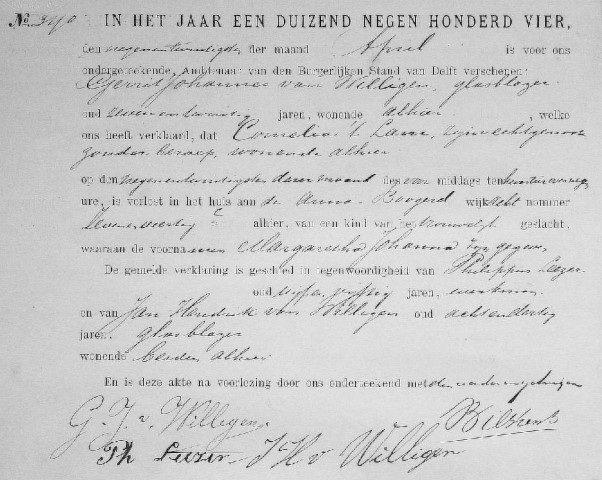 No. 340 IN HET JAAR EEN DUIZEND NEGEN HONDERD VIER,
den negenentwintigsten der maand April is voor ons
ondergeteekende, Ambtenaar van den Burgerlijken Stand van Delft verschenen:
Gerrit Johannes van Willigen, glasblazer
oud zevenentwintig jaren, wonende alhier, welke
ons heeft verklaard, dat Cornelia 't Lam, zijne echtgenoote
zonder beroep, wonende alhier
op den negenentwintigsten dezer maand des voormiddags ten
ure, is verlost in het huis aan de Anna-Boogerd wijk acht nommer
zevenenveertig alhier, van een kind van het vrouwelijk geslacht,
waaraan de voornamen Margaretha Johanna zijn gegeven
De gemelde verklaring is geschied in tegenwoordigheid van Philippus Lezer
oud vijfenvijftig jaren, werkman
en van Jan Hendrik van Willigen oud achtendertig
jaren, glasblazer
wonende beiden alhier
En is deze akte na voorlezing door ons onderteekend met
G. J. v. Willegen
Ph Lezer J H v Willigen